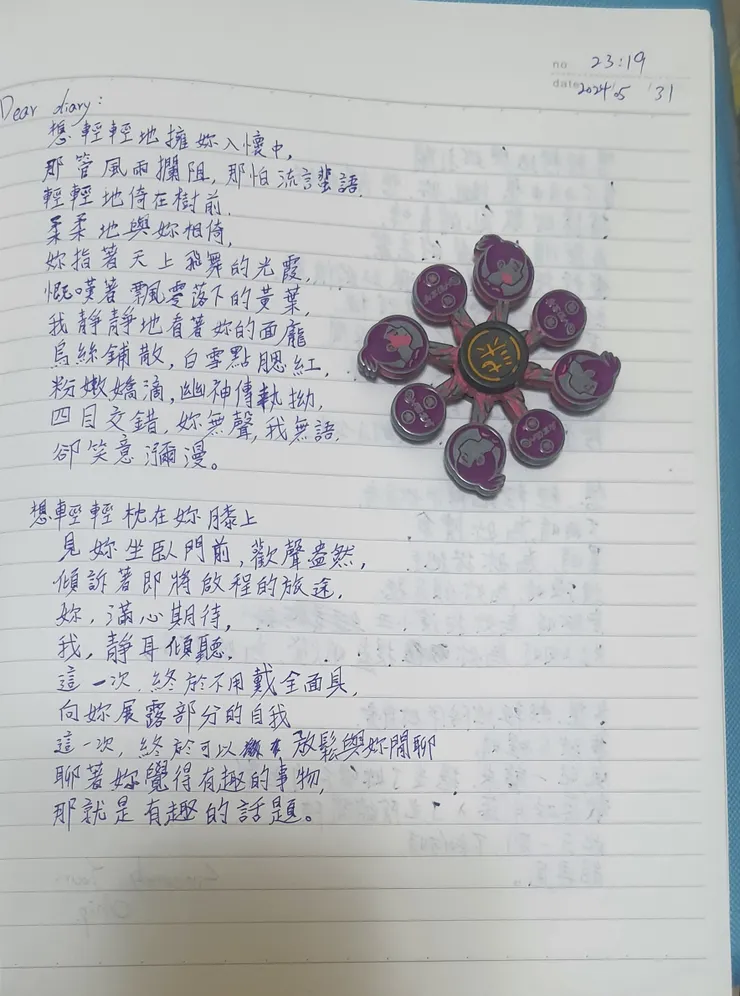 no 23:19
date 2024 05 '31
Dear diary:
想輕輕地擁妳入懷中,
那管風雨攔阻,那怕流言蜚語.
輕輕地倚在樹前.
柔柔地與妳相倚,
妳指著天上飛舞的光霞,
慨嘆著飄零落下的黃葉,
我靜靜地看著妳的面龐
烏絲鋪散,白雪點腮紅,
粉嫩嬌滴,幽神傳執拗,
四目交錯,妳無聲,我無語,
卻笑意瀰漫。
想輕輕枕在妳膝上
見妳坐臥門前,歡聲盎然,
傾訴著即將啟程的旅途,
妳,滿心期待,
我,靜耳傾聽.
這一次,終於不用戴全面具,
向妳展露部分的自我
這一次,終於可以放鬆與妳閒聊
聊著妳覺得有趣的事物,
那就是有趣的話題。